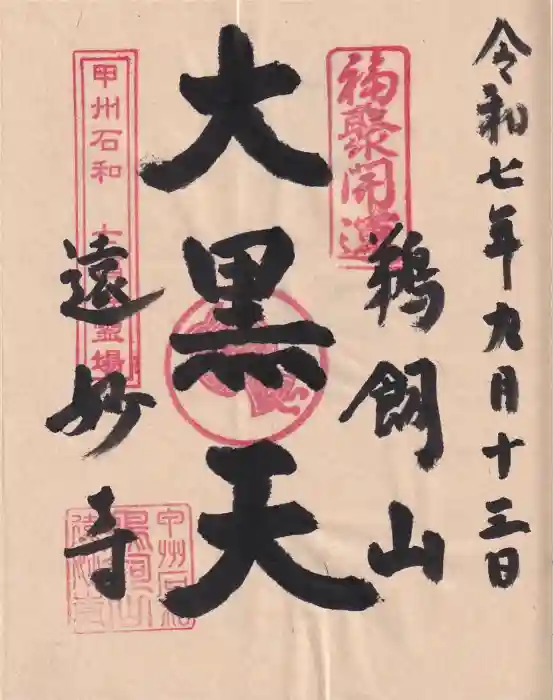 令和七年九月十三日
福聚開運
鵜飼山
大黒天
甲州石和 霊場
遠妙寺
甲州石和
鵜飼山
遠妙寺